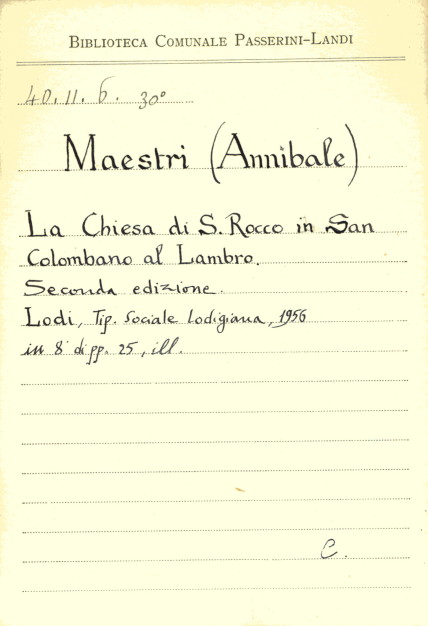 BIBLIOTECA COMUNALE PASSERINI-LANDI
40. II. 6. 30°
Maestri (Annibale)
La Chiesa di S. Rocco in San
Colombano al Lambro.
Seconda edizione.
Lodi, Tip. Sociale Lodigiana, 1956
in 8° di pp. 25, ill.
C.